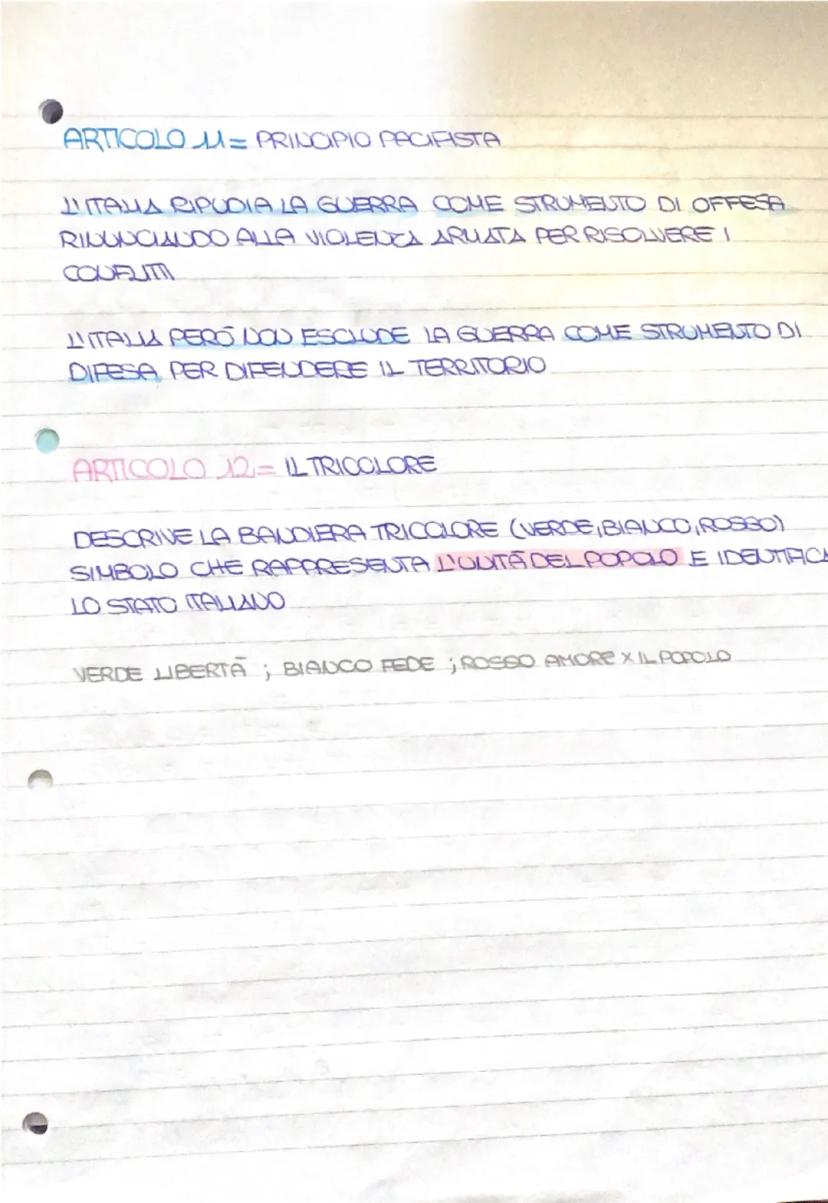 ARTICOLO 11= PRINCIPIO PACIFISTA
L'ITALIA RIPUDIA LA GUERRA COME STRUMENTO DI OFFESA
RINUNCIANDO ALLA VIOLENZA ARMATA PER RISOLVERE I
CONFLITTI
L'ITALIA PERÒ NON ESCLUDE LA GUERRA COME STRUMENTO DI
DIFESA PER DIFENDERE IL TERRITORIO
ARTICOLO 12= IL TRICOLORE
DESCRIVE LA BANDIERA TRICOLORE (VERDE,BIANCO,ROSSO)
SIMBOLO CHE RAPPRESENTA L'UNITÀ DEL POPOLO E IDENTIFICA
LO STATO ITALIANO
VERDE LIBERTÀ ; BIANCO FEDE ; ROSSO AMORE X IL POPOLO